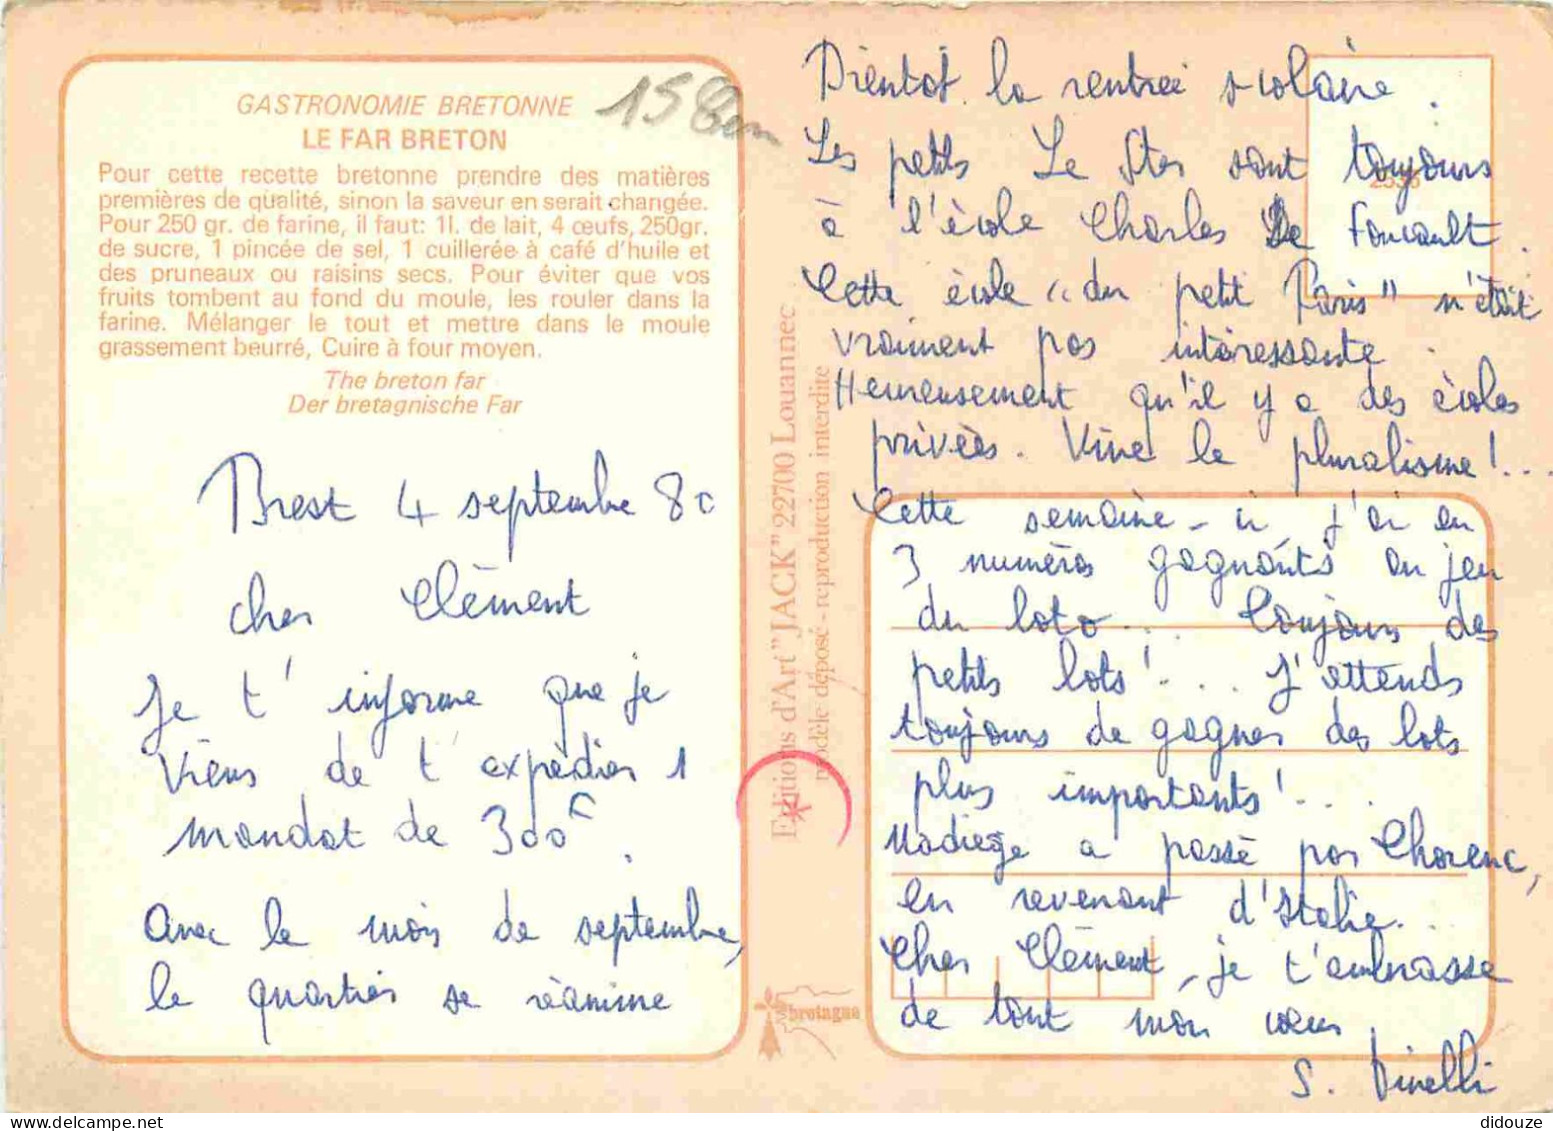 GASTRONOMIE BRETONNE
LE FAR BRETON
Pour cette recette bretonne prendre des matières
premières de qualité, sinon la saveur en serait changée.
Pour 250 gr. de farine, il faut: 1l. de lait, 4 œufs, 250gr.
de sucre, 1 pincée de sel, 1 cuillerée à café d'huile et
des pruneaux ou raisins secs. Pour éviter que vos
fruits tombent au fond du moule, les rouler dans la
farine. Mélanger le tout et mettre dans le moule
grassement beurré, Cuire à four moyen.
The breton far
Der bretagnische Far
Brest 4 septembre 80
cher Clément
Je t'informe que je
viens de t'expédier 1
mandat de 300F.
Avec le mois de septembre,
le quartier se réanime
Editions d'Art "JACK" 22700 Louannec
modèle déposé - reproduction interdite
bretagne
Bientôt la rentrée scolaire.
Les petits Le Ster sont toujours
à l'école Charles de Foucault.
Cette école "du petit Paris" n'était
vraiment pas intéressante.
Heureusement qu'il y a des écoles
privées. Vive le pluralisme!...
Cette semaine-ci j'ai eu
3 numéros gagnants au jeu
du loto... Toujours des
petits lots!... J'attends
toujours de gagner des lots
plus importants!...
a passé par Chorenc,
en revenant d'Italie..
Cher Clément, je t'embrasse
de tout mon cœur
S. Pinelli
didouze